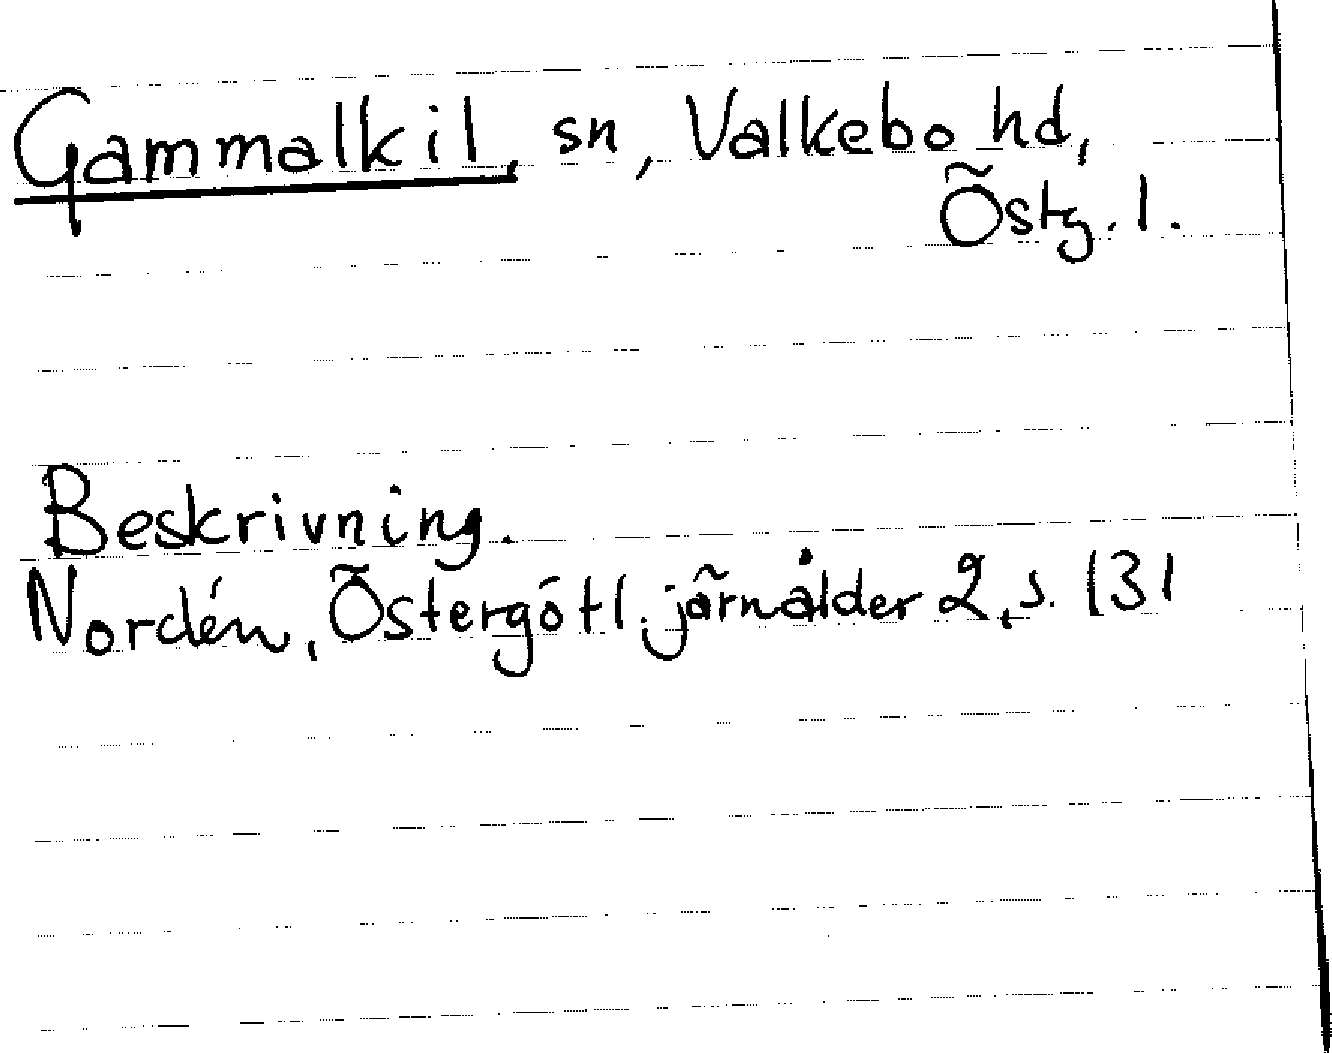 Gammalkil, sn, Valkebo hd,
Östg. l.
Beskrivning.
Nordén, Östergötl. järnålder 2, s. 131